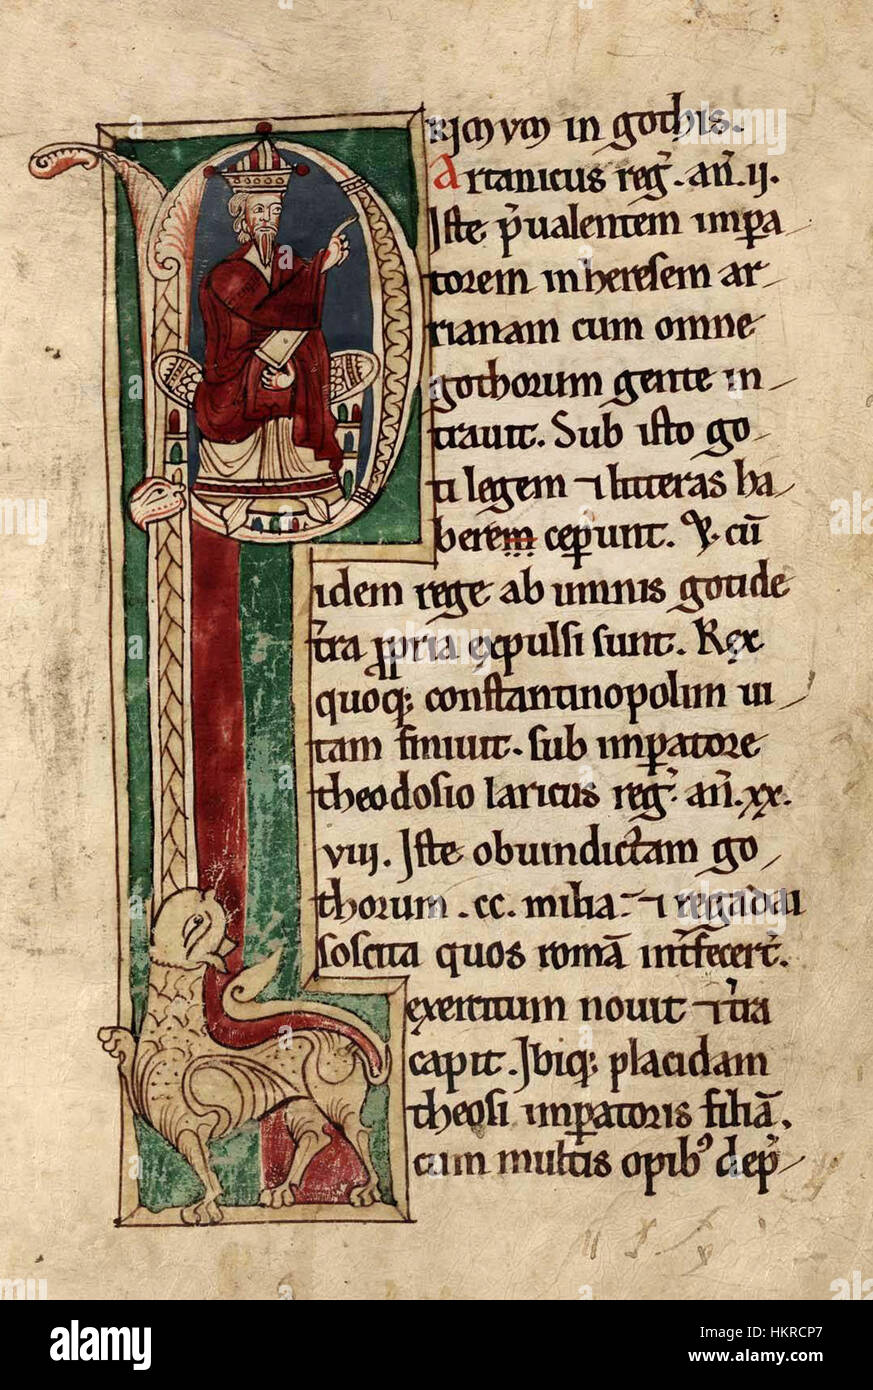 PRIMUM in gothis.
Artanicus reg̅. an̅. ii.
Iste p̅ualentem impa
torem in heresem ar
rianam cum omne
gothorum gente in
trauit. Sub isto go
ti legem ⁊ litteras ha
berem ceperunt. Post cu̅
idem rege ab umnis goti de
t̅ra ꝓpria expulsi sunt. Rex
quoq; constantinopolim ui
tam finiuit. sub imperatore
theodosio laricus reg̅. an̅. xx.
viii. Iste ob uindictam go
thorum .cc. milia ⁊ regadai
soscita quos roma̅ int̅fecer̅t.
exercitum nouit ⁊ t̅ra
capit. Ibiq; placidam
theosi imperatoris filia̅.
cum multis opibꝰ dep̅
alamy
Image ID: HKRCP7
www.alamy.com